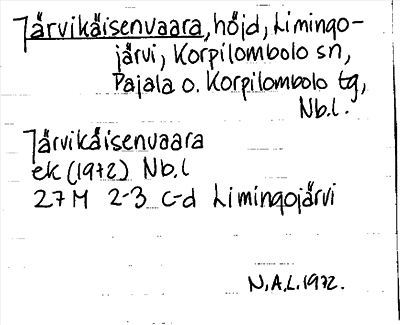 Järvikäisenvaara, höjd, Limingo-
järvi, Korpilombolo sn,
Pajala o. Korpilombolo tg,
Nb.l.
Järvikäisenvaara
ek (1972) Nb.l
27M 2-3 c-d Limingojärvi
N.A.L. 1972.